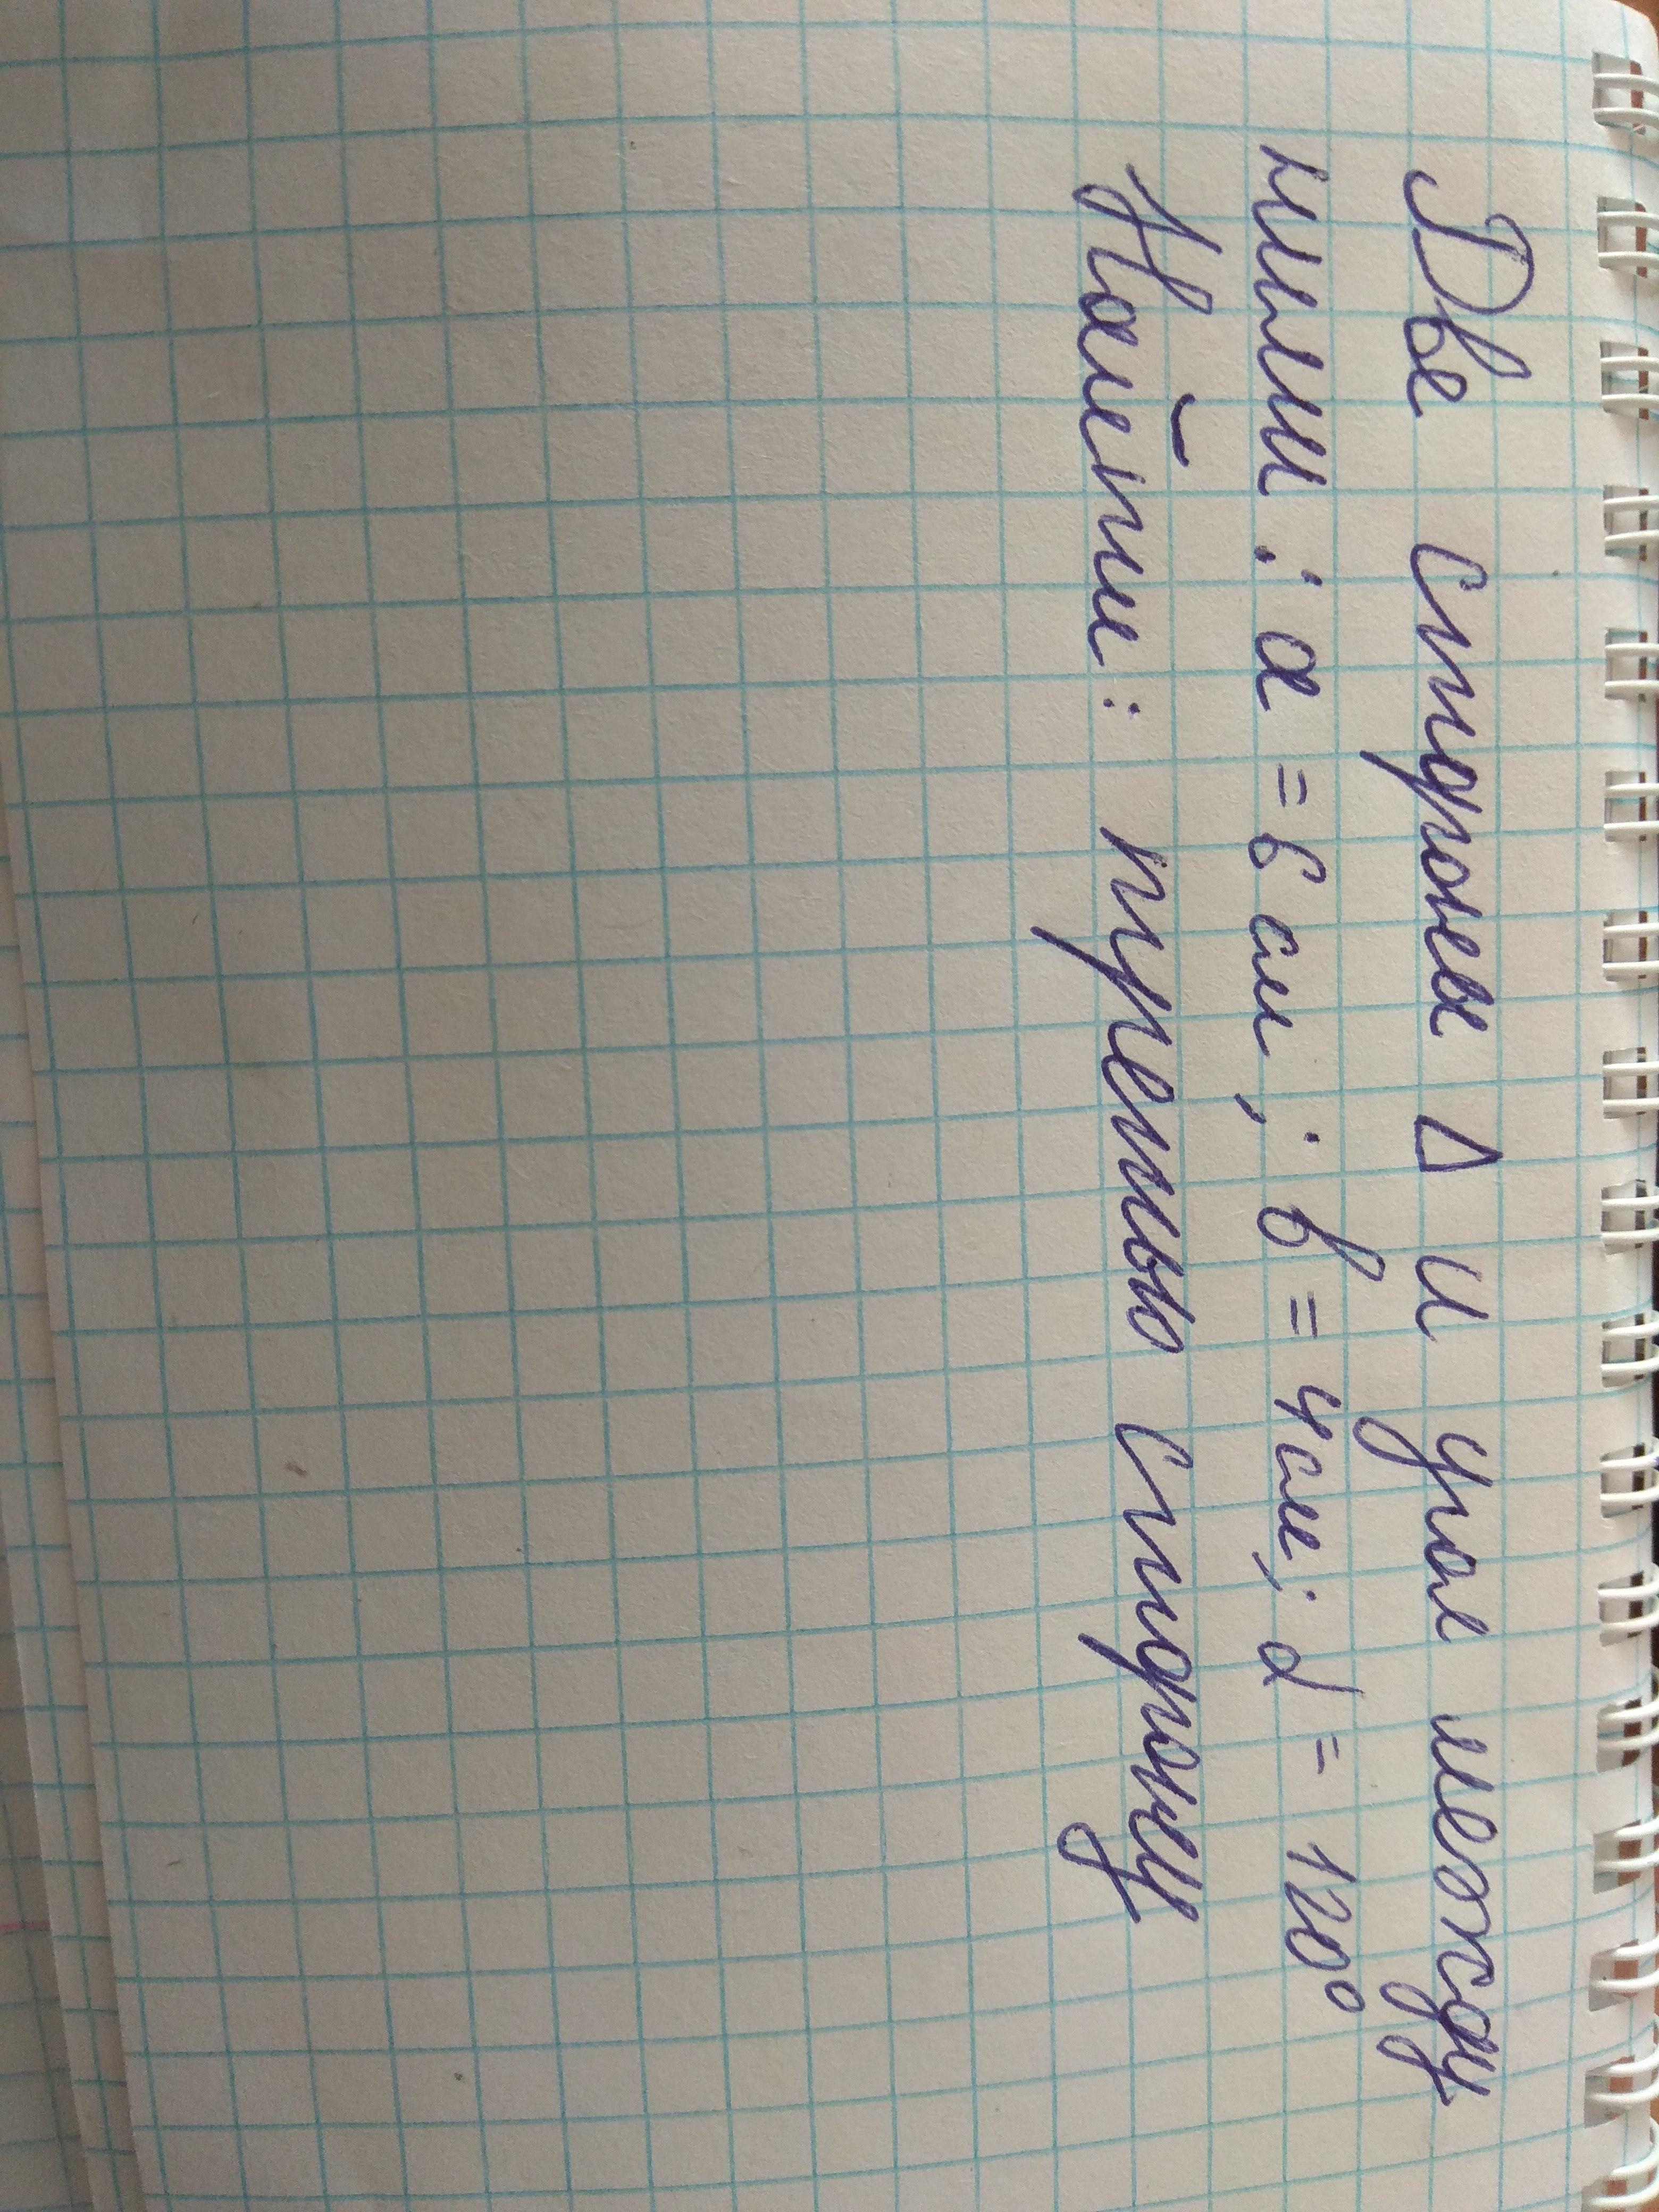 Две стороны Δ и угол между
ними: a = 6 см; b = 4см; α = 120°
Найти: третью сторону